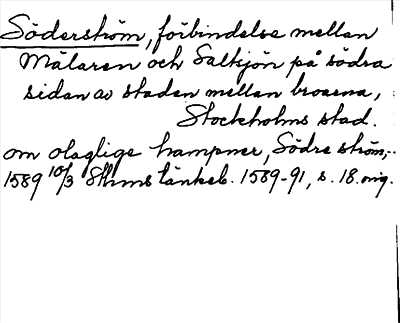 Söderström, förbindelse mellan
Mälaren och Saltsjön på södra
sidan av staden mellan broarna,
Stockholms stad.
om olaglige hampner, Södre ström,
1589 10/3 Sthms tänkeb. 1589-91, s. 18. orig.